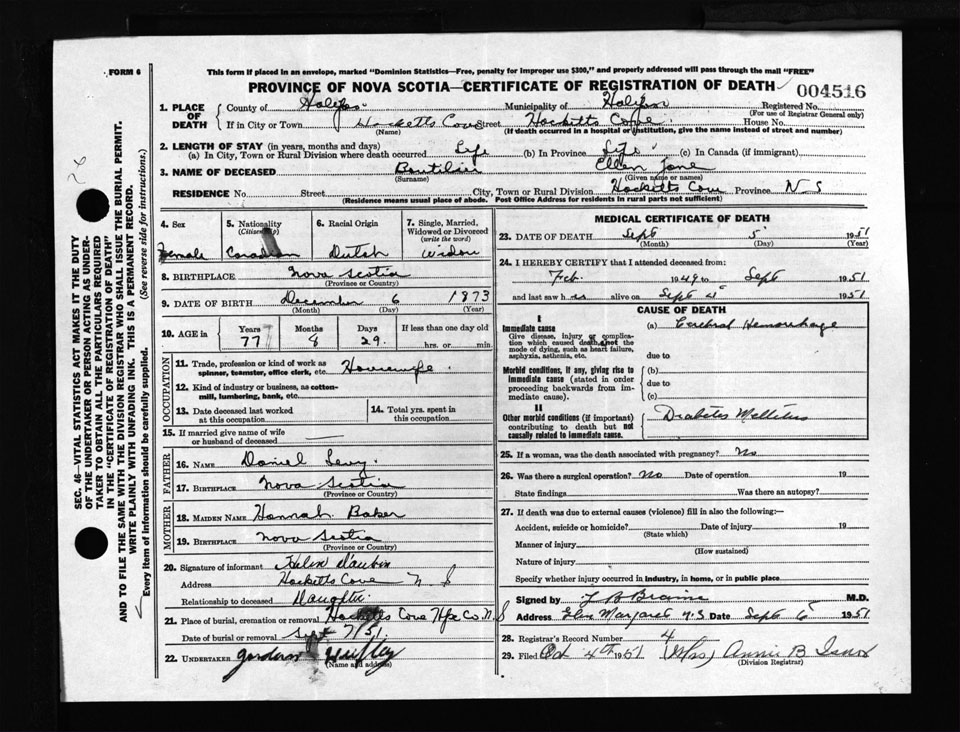 FORM 6
This form if placed in an envelope, marked "Dominion Statistics—Free, penalty for improper use $300," and properly addressed will pass through the mail "FREE"
PROVINCE OF NOVA SCOTIA—CERTIFICATE OF REGISTRATION OF DEATH
004516
1. PLACE OF DEATH
County of Halifax Municipality of Halifax Registered No.
(For use of Registrar General only)
If in City or Town Hacketts Cove Street Hacketts Cove House No.
(Name) (If death occurred in a hospital or institution, give the name instead of street and number)
2. LENGTH OF STAY (in years, months and days)
(a) In City, Town or Rural Division where death occurred Life (b) In Province Life (c) In Canada (if immigrant)
3. NAME OF DECEASED Boutilier Jane
(Surname) (Given name or names)
RESIDENCE No. Street City, Town or Rural Division Hacketts Cove Province N S
(Residence means usual place of abode. Post Office Address for residents in rural parts not sufficient)
4. Sex
Female
5. Nationality
(Citizenship)
Canadian
6. Racial Origin
Dutch
7. Single, Married, Widowed or Divorced
(write the word)
Widow
8. BIRTHPLACE Nova Scotia
(Province or Country)
9. DATE OF BIRTH December 6 1873
(Month) (Day) (Year)
10. AGE in
Years Months Days If less than one day old
77 8 29. hrs. or min.
OCCUPATION
11. Trade, profession or kind of work as spinner, teamster, office clerk, etc. Housewife.
12. Kind of industry or business, as cotton-mill, lumbering, bank, etc.
13. Date deceased last worked at this occupation
14. Total yrs. spent in this occupation
15. If married give name of wife or husband of deceased
FATHER
16. NAME Daniel Levy.
17. BIRTHPLACE Nova Scotia
(Province or Country)
MOTHER
18. MAIDEN NAME Hannah Baker
19. BIRTHPLACE Nova Scotia
(Province or Country)
20. Signature of informant Helen
Address Hacketts Cove N S
Relationship to deceased Daughter
21. Place of burial, cremation or removal Hacketts Cove Hfx Co. N. S
Date of burial or removal Sept 7/51
22. UNDERTAKER
(Name and address)
MEDICAL CERTIFICATE OF DEATH
23. DATE OF DEATH Sept 5 1951
(Month) (Day) (Year)
24. I HEREBY CERTIFY that I attended deceased from:
Feb. 1949 to Sept 1951
and last saw her alive on Sept 4 1951
CAUSE OF DEATH
I
Immediate cause
Give disease, injury or complication which caused death, not the mode of dying, such as heart failure, asphyxia, asthenia, etc.
(a) Cerebral Hemorrhage
due to
Morbid conditions, if any, giving rise to immediate cause (stated in order proceeding backwards from immediate cause).
(b)
due to
(c)
II
Other morbid conditions (if important) contributing to death but not causally related to immediate cause.
Diabetes Mellitus
25. If a woman, was the death associated with pregnancy? No
26. Was there a surgical operation? No Date of operation 19
State findings Was there an autopsy?
27. If death was due to external causes (violence) fill in also the following:—
Accident, suicide or homicide? Date of injury 19
(State which)
Manner of injury
(How sustained)
Nature of injury
Specify whether injury occurred in industry, in home, or in public place
Signed by M.D.
Address Glen Margaret N.S Date Sept 6 1951
28. Registrar's Record Number 4
29. Filed Oct 4th 1951 (Mrs) Annie B
(Division Registrar)
SEC. 46—VITAL STATISTICS ACT MAKES IT THE DUTY
OF THE UNDERTAKER OR PERSON ACTING AS UNDER-
TAKER TO OBTAIN ALL THE PARTICULARS REQUIRED
IN THE "CERTIFICATE OF REGISTRATION OF DEATH"
AND TO FILE THE SAME WITH THE DIVISION REGISTRAR WHO SHALL ISSUE THE BURIAL PERMIT.
WRITE PLAINLY WITH UNFADING INK. THIS IS A PERMANENT RECORD.
Every item of information should be carefully supplied. (See reverse side for instructions.)